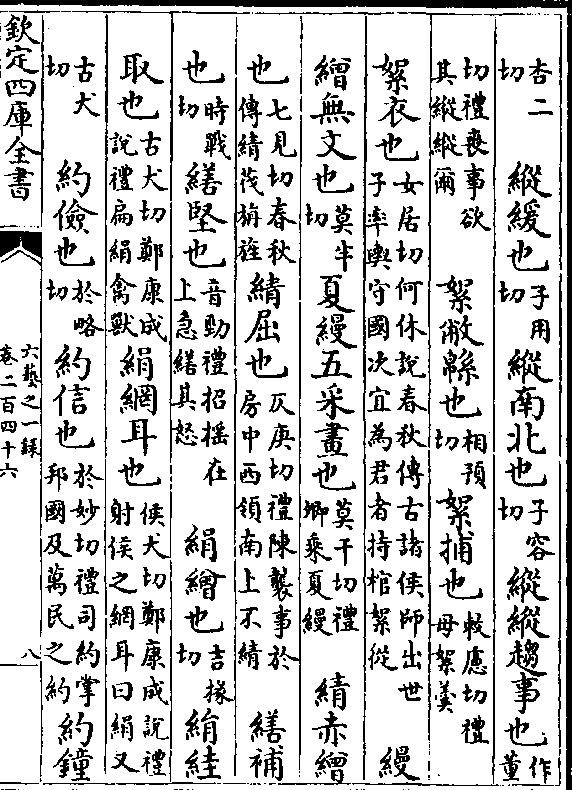 杏二切縱緩也子用切縱南北也子容切縱縱趨事也作董
切禮喪事欲其縱縱爾絮敝緜也相預切絮捕也敕慮切禮母絮羹
絮衣也女居切何休說春秋傳古諸侯師出世子率輿守國次宜為君者持棺絮從縵
繒無文也莫半切夏縵五采畫也莫干切禮卿乘夏縵綪赤繒
也七見切春秋傳綪茷旃旌綪屈也仄庚切禮陳襲事於房中西領南上不綪繕補
也時戰切繕堅也音勁禮招摇在上急繕其怒絹繒也吉掾切絹絓
取也古犬切鄭康成說禮扃絹禽獸絹網耳也侯犬切鄭康成說禮射侯之網耳曰絹又
古犬切約儉也於略切約信也於妙切禮司約掌邦國及萬民之約約鐘
欽定四庫全書
六藝之一録
卷二百四十六
八